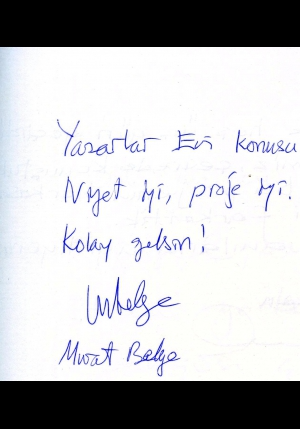 Yazarlar Evi konusu
Niyet iyi, proje iyi.
Kolay gelsin!
MBelge
Murat Belge